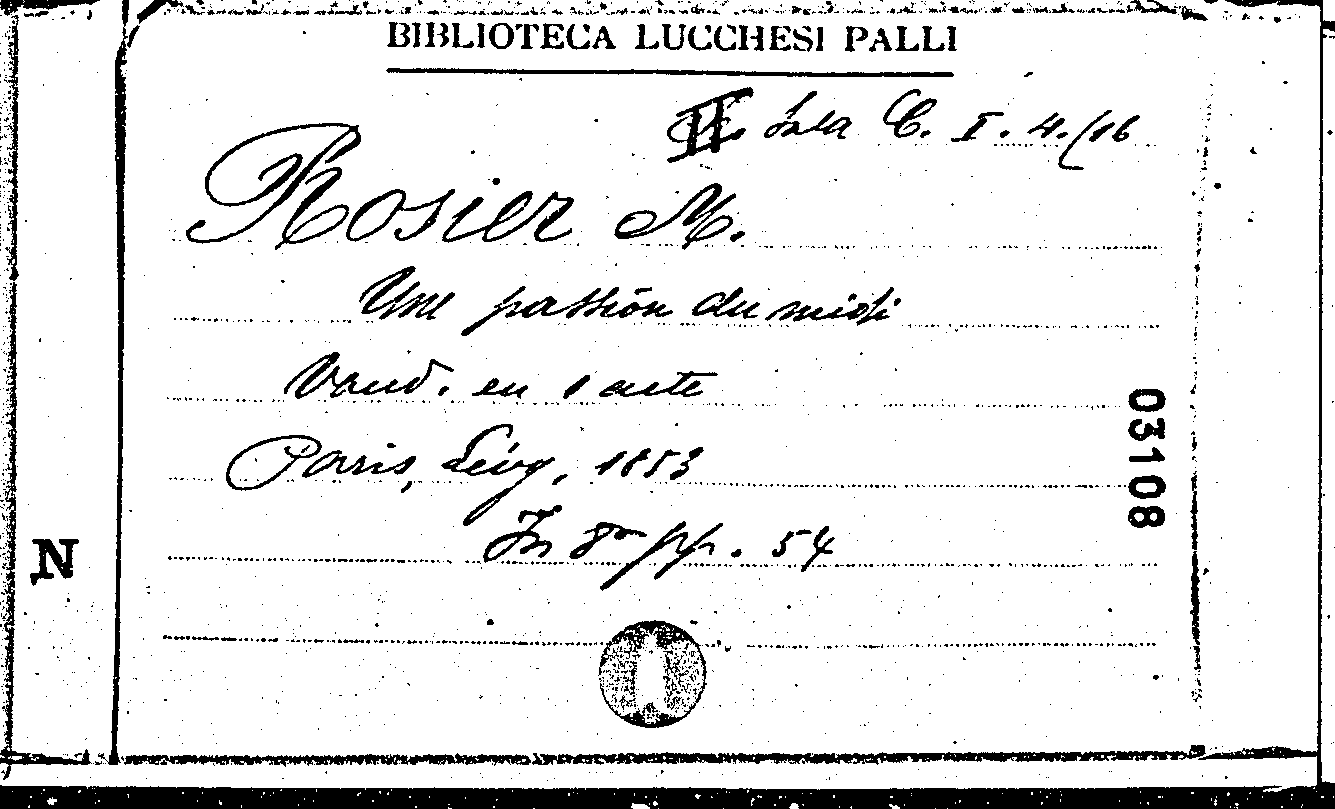 BIBLIOTECA LUCCHESI PALLI
II. Sala C. I. 4./16
Rosier M.
Une passion du midi
Vaud. en 1 acte
Paris, Lévy, 1853
In 8º pp. 54
03108
N